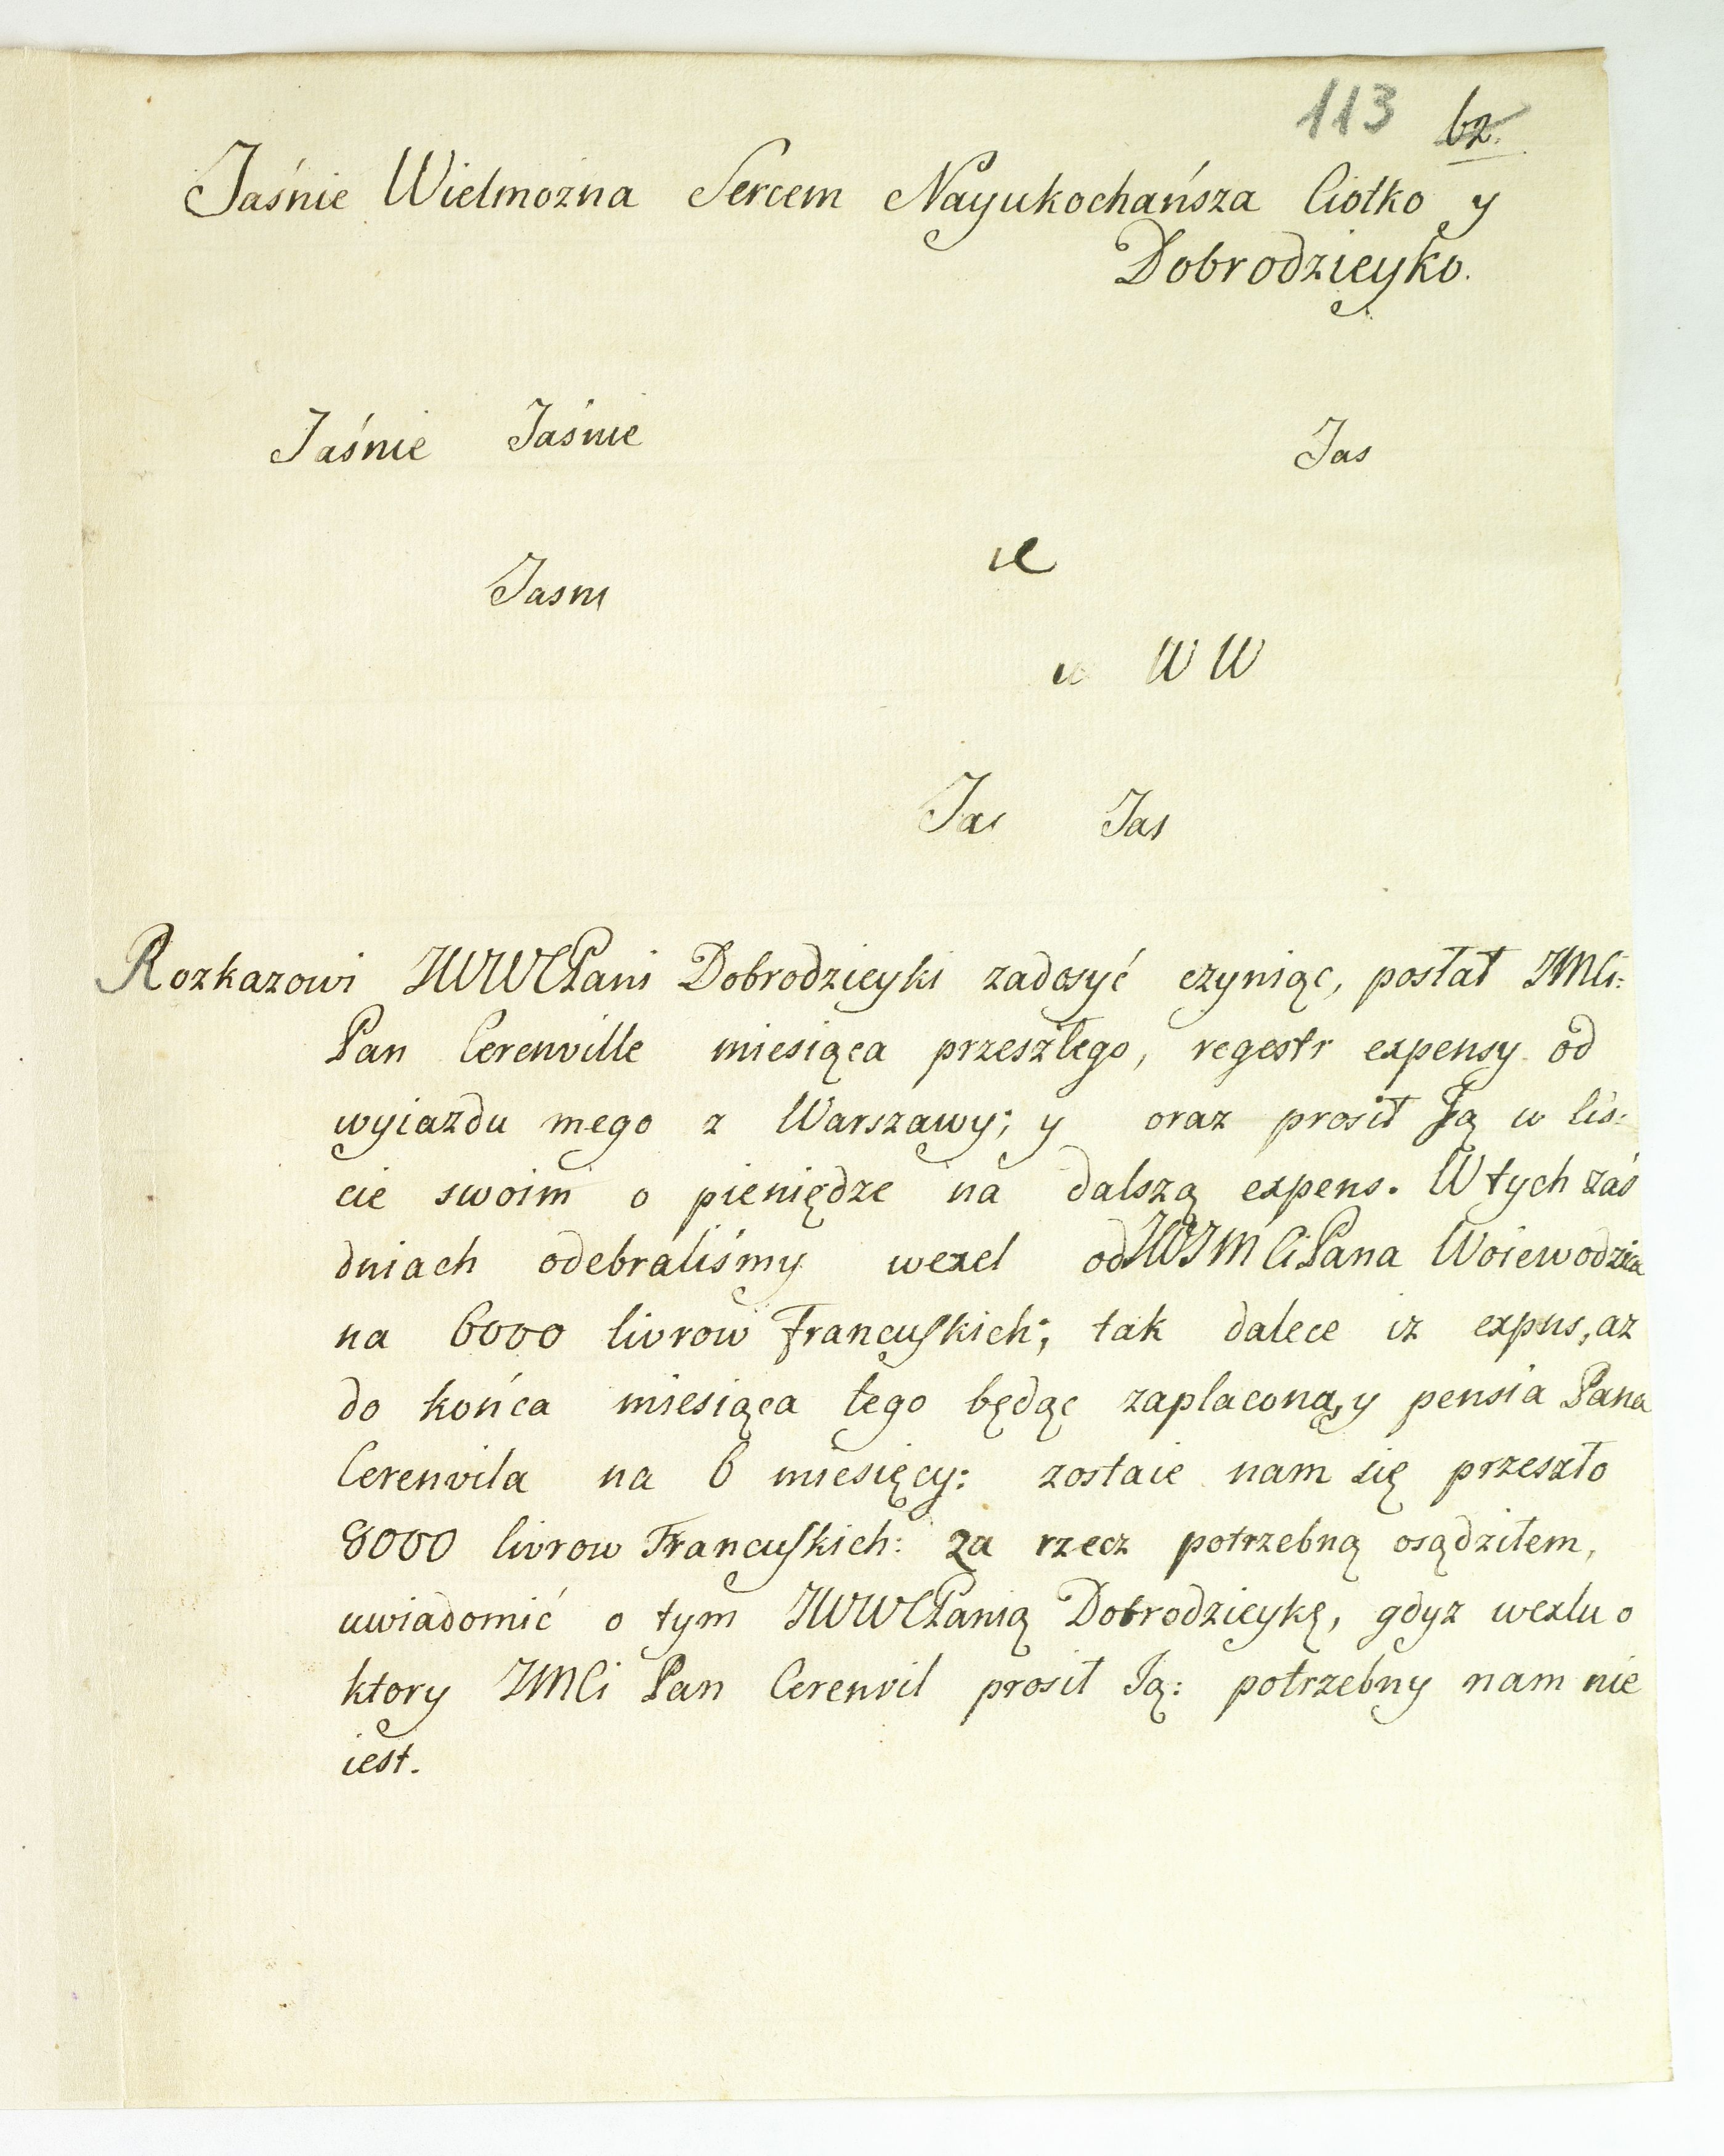 113 62.
Jaśnie Wielmozna Sercem Nayukochańsza Ciotko y
Dobrodzieyko.
Jaśnie Jaśnie Jas
Jasni ie
W W
Jas Jas
Rozkazowi JWWCPani Dobrodzieyki zadosyć czyniąc, posłał JMCi:
Pan Cerenville miesiąca przeszłego, regestr expensy od
wyiazdu mego z Warszawy; y oraz prosił Ją w liś:
cie swoim o pieniędze na dalszą expens. W tych zaś
dniach odebraliśmy wexel od JWJMCiPana Woiewodzica
na 6000 livrow Francuskich; tak dalece iz expns, az
do końca miesiąca tego będąc zaplaconą, y pensia Pana
Cerenvila na 6 miesięcy: zostaie nam się przeszło
8000 livrow Francuskich: za rzecz potrzebną osądziłem,
uwiadomić o tym JWWCPanią Dobrodzieykę, gdyz wexlu o
ktory JMCi Pan Cerenvil prosił Ją: potrzebny nam nie
iest.